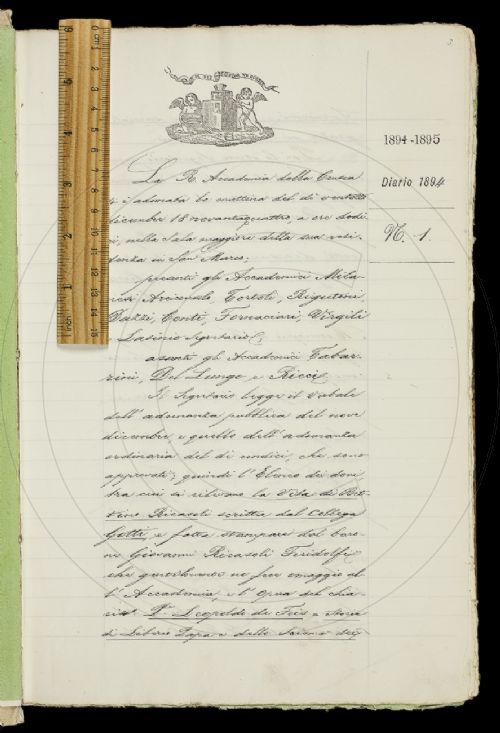 3
1894-1895
Diario 1894
N. 1.
La R. Accademia della Crusca
s'è adunata la mattina del dì
dicembre 18 novantaquattro, a ore dodi-
ci, nella Sala maggiore della sua resi-
denza in San Marco;
presenti gli Accademici Mila-
Arciconsolo, Tortoli, Rigutini
Dazzi, Conti, Fornaciari, Virgilj
Lasinio Segretario;
assenti gli Accademici Tabar-
rini, Del Lungo e Ricci.
Il Segretario legge il Verbale
dell'adunanza pubblica del nove
dicembre, e quello dell'adunanza
ordinaria del dì undici, che sono
approvati; quindi l'Elenco dei doni
tra cui si rilevano la Vita di Bet-
tino Ricasoli scritta dal Collega
Gotti, e fatta stampare dal baro-
ne Giovanni Ricasoli Firidolfi,
che ne fece omaggio al-
l'Accademia, e l'Opera del chia-
Pr. Leopoldo de Feis, Storia
di Liberio Papa e dello Scisma dei